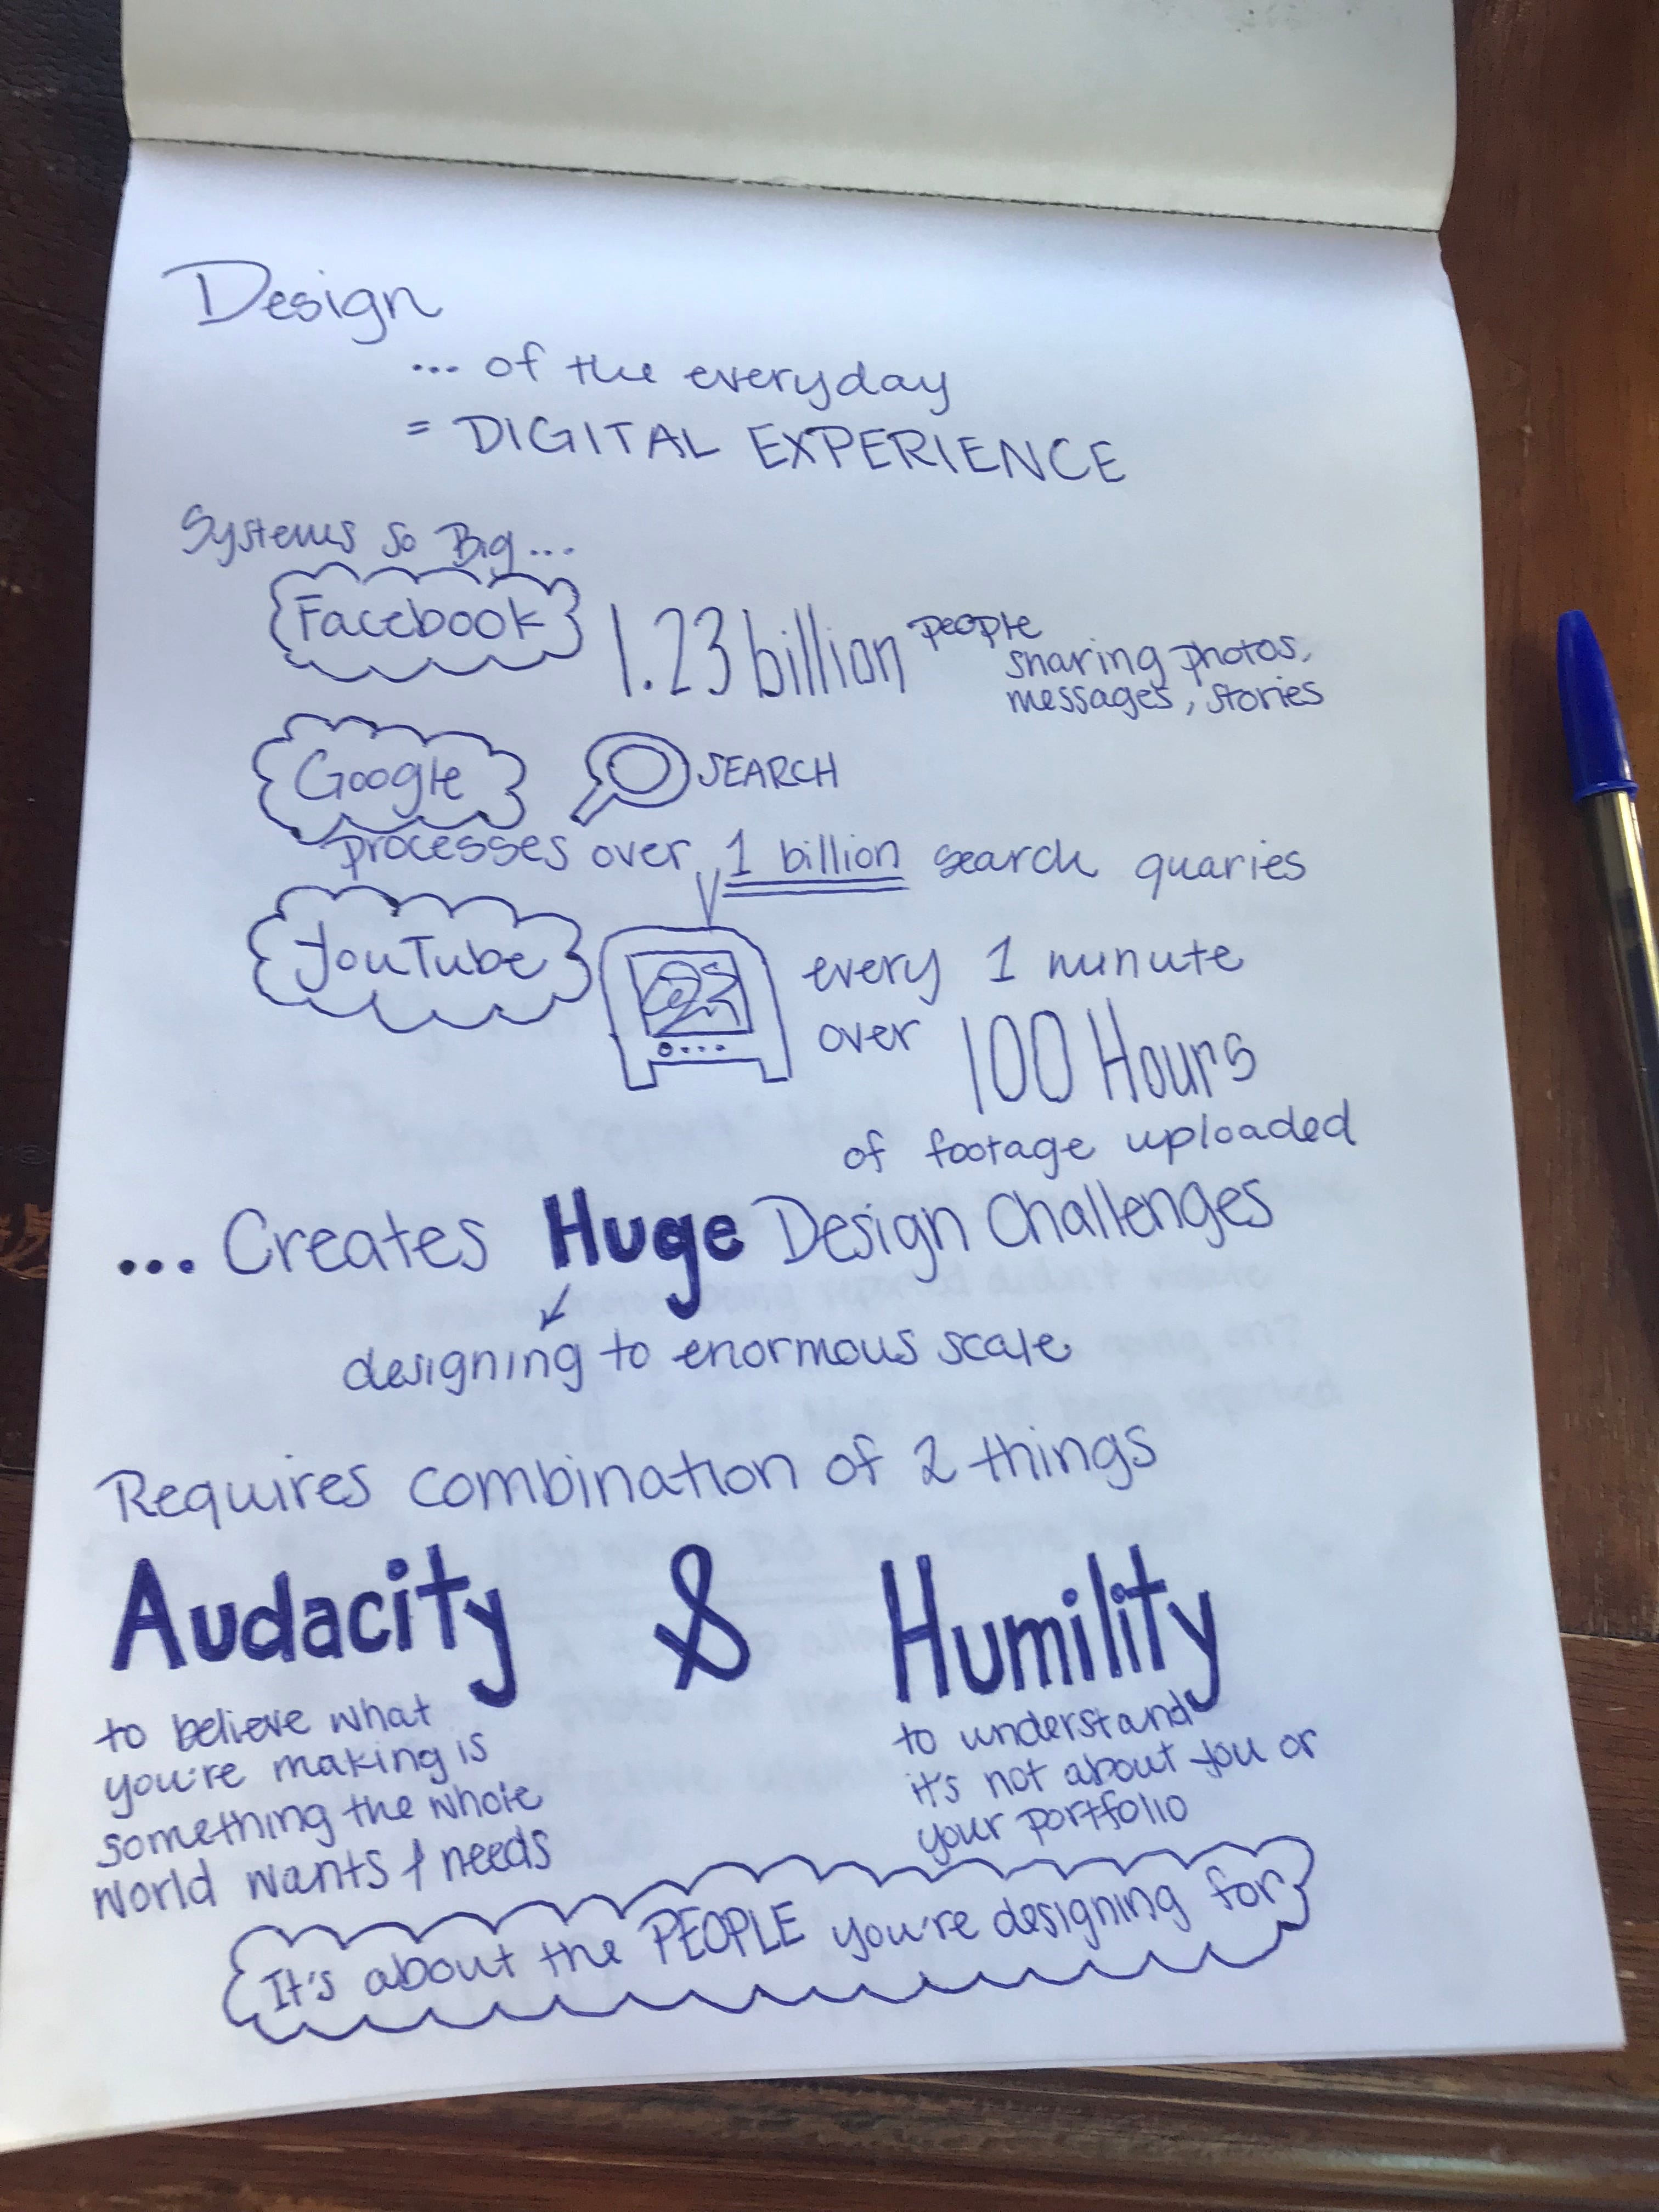 Design
... of the everyday
= DIGITAL EXPERIENCE
Systems so Big...
Facebook
1.23 billion people
sharing photos,
messages, stories
Google
SEARCH
processes over 1 billion search quaries
YouTube
every 1 minute
over 100 Hours
of footage uploaded
... Creates Huge Design Challenges
designing to enormous scale
Requires combination of 2 things
Audacity & Humility
to believe what
you're making is
something the whole
world wants & needs
to understand
it's not about you or
your portfolio
It's about the PEOPLE you're designing for